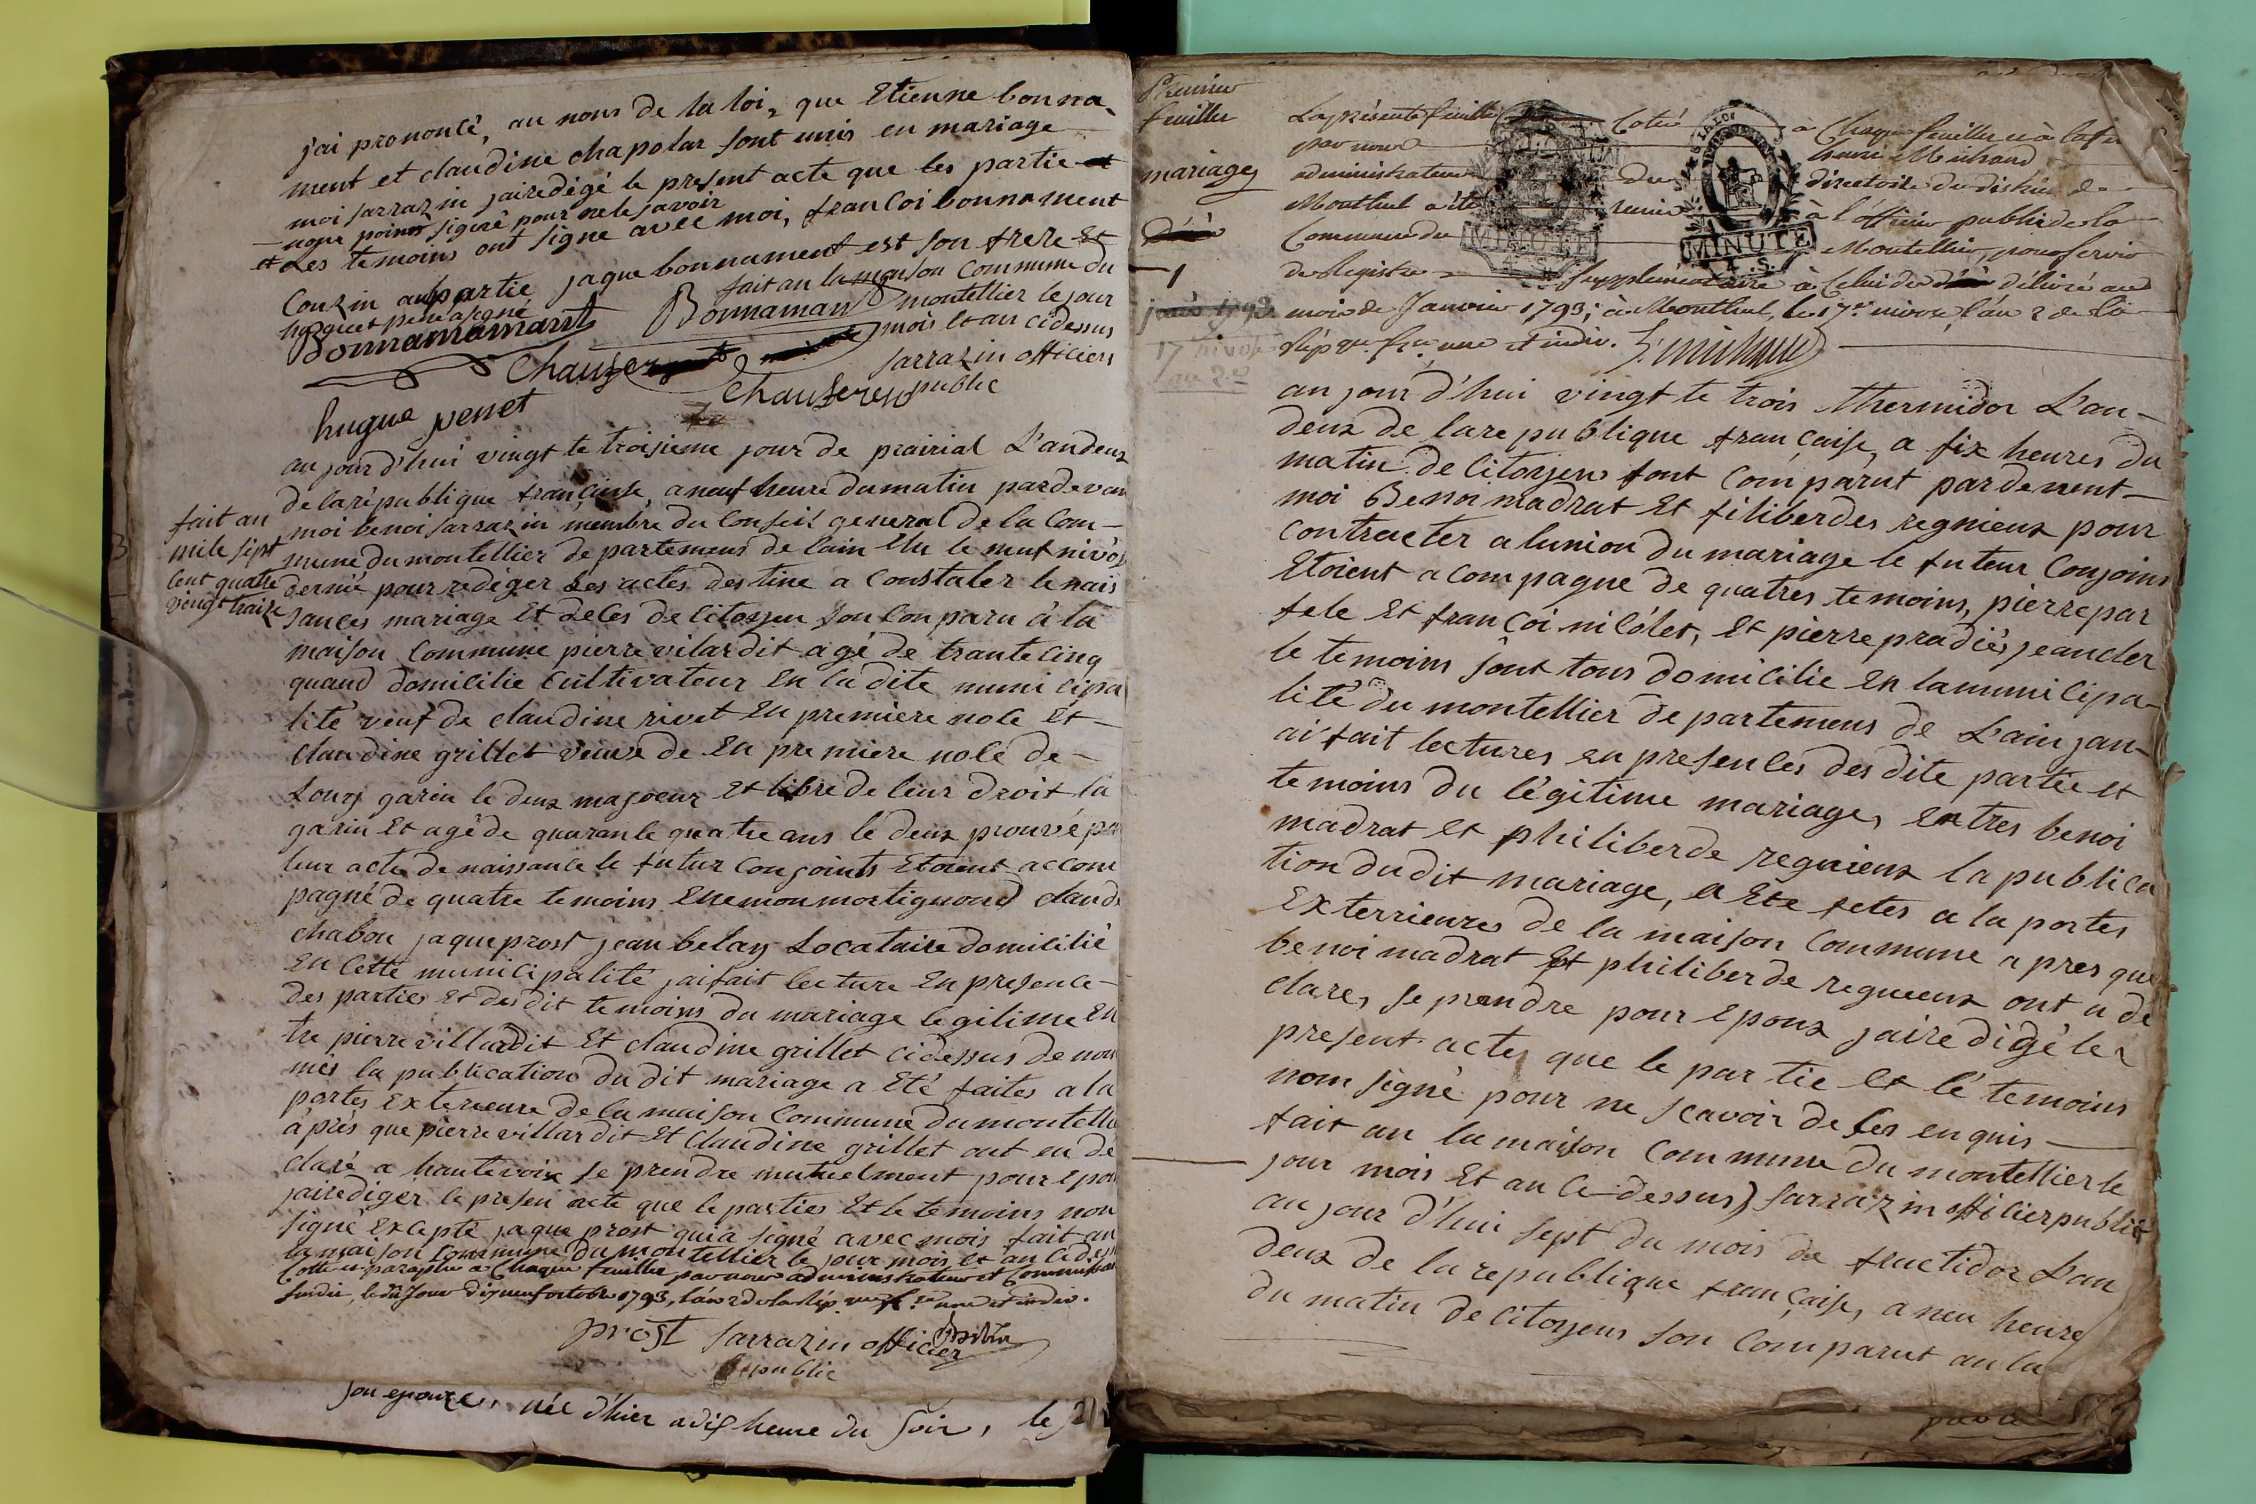 j'ai prononcé, au nons de la loi, que Etienne bonna
ment et claudine chapolar sont unis en mariage
moi sarrazin jairedigé le present acte que les partie
nom poins signé pour ne le savoir
et Les temoins ont signe avec moi, françoi bonnament
Couzin au partie jaque bonnament est son frere Et
huguet pene a signé
fait an la maison Commune du
montellier le jour
mois et an cidessus
sarrazin officier
public
Bonnamant
Bonnamant
Chauzer
Chauzeren
hugue penet
au jour d'hui vingt te troisieme jour de prairial L'an deux
de la republique françaisse, a neuf heure du matin pardevan
moi benoi sarrazin membre du Conseil general de la Com-
mune du montellier de partemens de lain Elu le neuf nivos
dernié pour rediger Les actes destine a Constater le nais
sances mariage Et deces de Citoyen Son Comparu à la
fait an
mile sept
cent quatre
vingt traize
maison Commune pierre vilardit agé de trante cinq
quand domicilie Cultivateur En la dite muni cipa
lité veuf de claudine rivet En premiere noce Et
claudine grillet veuve de En premiere nolé de
Louis garin le deux majoeur Et libre de leur droit la
garin Et agé de quarante quatre ans le deux prouvé par
leur acte de naissance le futur Conjoints Etoient accom
pagné de quatre temoins Enemon mortignond claude
chabou jaque prost jean belay Locataire domicilié
En Cette municipalité jai fait lecture En presence
des parties Et desdit temoins du mariage legitime En
tre pierre villardit Et claudine grillet cidessus denom
més la publication dudit mariage a Eté faites a la
portes Exterieure de la maison Commune du montelli
àprés que pierre villardit Et claudine grillet ont eu dé
claré a hautevoix se prendre mutuelment pour Epou
jairediger le presen acte que le parties Et le temoins non
signé Excepté jaque prost qui a signé avec mois fait an
la maison Commune du montellier le jour mois et an cidess
Cotté et paraphé a Chaque feuille par nous administrateur et Commissaire
susdit, le dit jour dix neuf octobre 1793, l'an 2 de la Rép. que f. se une et indiv.
prost sarrazin officier
public
son epouze, née d'hier a dix heure du soir, le
Premier
feuillet
mariages
1
17 nivose
an 2.e
La présente feuille Cotée à Chaque feuillet et à la fin
par nous henri Michaud
administrateur du directoire du district de
Montluel a été remis à l'officier public de la
Commune du Montellier, pour servir
de Registre Supplémentaire à Celui de délivré au
mois de Janvier 1793; à Montluel, le 17.e nivose, l'an 2 de la
Rép.que fr.se une et indiv. h. michaud
MINUTE
4. S.
LA LOI
MINUTE
4. S.
au jour d'hui vingt te trois thermidor L'an
deux de lare publique française, a six heures du
matin de Citoyen sont Comparut pardevent
moi Benoi madrat Et filiberdes regnieux pour
Contracter a lunion du mariage le futeur Conjoins
Etoient a compagne de quatres temoins, pierre par
fele Et françoi nicolet, Et pierre pradier, jeancler
le temoins sont tous domicilie En lamunicipa
lité du montellier de partemens de L'ain jan
ai fait lectures en presences des dite partie et
temoins du légitime mariage, entres benoi
madrat et philiberde regnieux la publica
tion dudit mariage, a Ete fetes a la portes
Exterrieures de la maison Commune apres que
benoi madrat Et philiberde regnieux ont a dé
clare, se prendre pour Epoux jairedigé le
present actes que le partie Et lé temoins
nom signé pour ne scavoir de ces enquis
fait an la maison Commune du montellier le
jour mois Et an Ci-dessus) sarrazin officier public
au jour d'hui sept du mois de fructidor L'an
deux de la republique française, a neu heure
du matin de Citoyens son Comparut an la